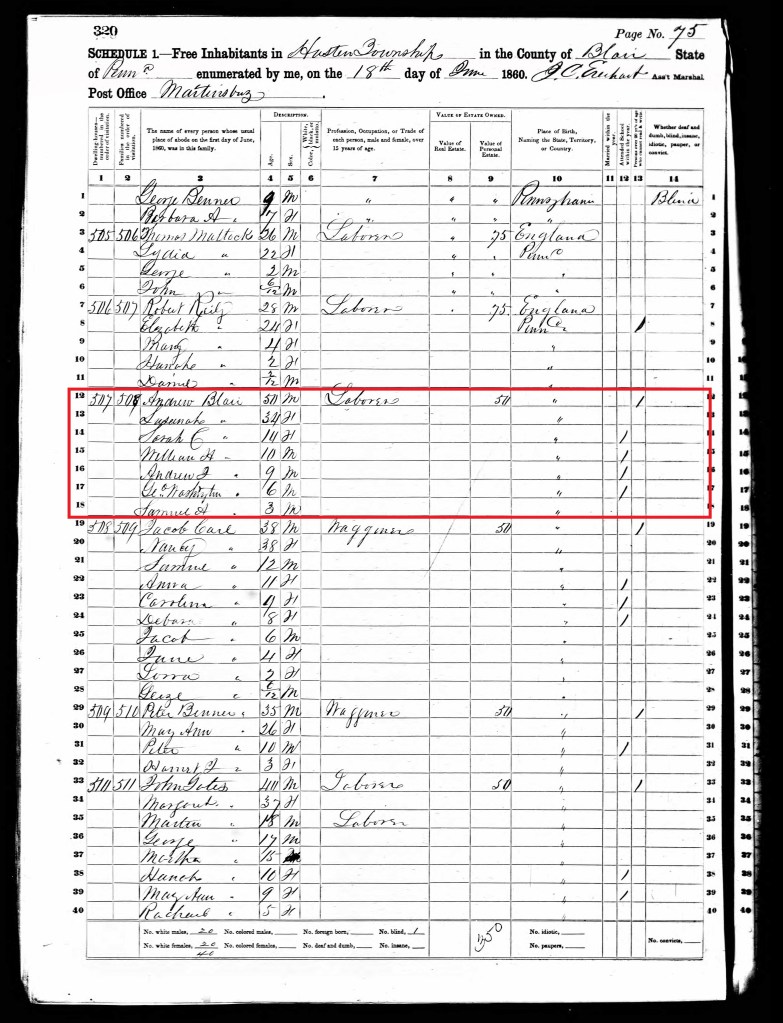 320
Page No. 75
SCHEDULE 1.—Free Inhabitants in Huston Township in the County of Blair State
of Penna enumerated by me, on the 18th day of June 1860. Ass't Marshal
Post Office Martinsburg
DESCRIPTION. VALUE OF ESTATE OWNED.
Dwelling-houses—numbered in the order of visitation. Families numbered in the order of visitation. The name of every person whose usual place of abode on the first day of June, 1860, was in this family. Age. Sex. Color, White, black, or mulatto. Profession, Occupation, or Trade of each person, male and female, over 15 years of age. Value of Real Estate. Value of Personal Estate. Place of Birth, Naming the State, Territory, or Country. Married within the year. Attended School within the year. Whether deaf and dumb, blind, insane, idiotic, pauper, or convict.
1 2 3 4 5 6 7 8 9 10 11 12 13 14
1 George Benner 9 M " " " Pennsylvania Blind 1
2 Barbara A " 7 F " " " " 2
3 505 506 Thomas Mattock 26 M Laborer " 75 England 3
4 Lydia " 22 F " " Penna 4
5 George " 2 M " " " 5
6 John " 6/12 M " " " 6
7 506 507 Robert Reily 28 M Laborer " 75 England 7
8 Elizabeth " 24 F Penna / 8
9 Mary " 4 F " 9
10 Hannah " 2 F " 10
11 Daniel " M " 11
12 507 508 Andrew Blair 50 M Laborer 50 " / 12
13 Susanah " 34 F " 13
14 Sarah C " 14 F " / 14
15 William H " 10 M " / 15
16 Andrew J " 9 M " / 16
17 Geo. Washington " 6 M " / 17
18 Samuel A " 3 M " 18
19 508 509 Jacob Carl 38 M Waggoner 50 " / 19
20 Nancy " 38 F " 20
21 Samue " 12 M " 21
22 Anna " 11 F " / 22
23 Carolina " 9 F " / 23
24 Debora " 8 F " / 24
25 Jacob " 6 M " 25
26 Jane " 4 F " 26
27 " 2 F " 27
28 " 6/12 M " 28
29 509 510 Peter Benner " 35 M Waggoner 50 " / 29
30 May Ann " 26 F " 30
31 Peter " 10 M " / 31
32 Harriet J " 3 F " 32
33 510 511 John 40 M Laborer 50 " / 33
34 Margaret " 37 F " 34
35 Martin " 18 M Laborer " 35
36 George " 17 M " 36
37 Martha " 15 " 37
38 Hanah " 10 F " / 38
39 May Ann " 9 F " / 39
40 Rachael " 5 F " 40
No. white males, 20 No. colored males, No. foreign born, No. blind, 1 350 No. idiotic, No. convicts,
No. white females, 20 No. colored females, No. deaf and dumb, No. insane, No. paupers,
40